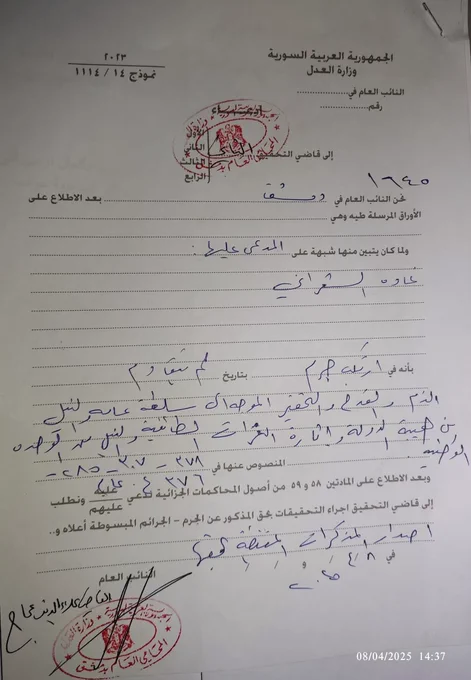 الجمهورية العربية السورية
وزارة العدل
٢٠٢٣
نموذج ١٤ / ١١١٤
النائب العام في
رقم
ادعاء
الأول
الثاني
إلى قاضي التحقيق الثالث
الرابع
١٦٤٥
نحن النائب العام في دمشق بعد الاطلاع على
الأوراق المرسلة طيه وهي
ولما كان يتبين منها شبهة على المدعى عليها :
غاده الشعراني
بأنه في ارتكب جرم بتاريخ لم يتقادم
الذم والقدح والتحقير الموجه إلى سلطة عامة والنيل
من هيبة الدولة وإثارة النعرات الطائفية والنيل من الوحدة
الوطنية
المنصوص عنها في ٣٧٨ - ٣٠٧ - ٢٨٥ -
٣٧٦
وبعد الاطلاع على المادتين ٥٨ و ٥٩ من أصول المحاكمات الجزائية ندعي عليه عليهم ونطلب
إلى قاضي التحقيق اجراء التحقيقات بحق المذكور عن الجرم - الجرائم المبسوطة أعلاه و..
اصدار المذكرات المقتضية بحقها
في ٨ / ٤ / ٢٠٢٥
النائب العام
المحامي العام بدمشق
08/04/2025 14:37